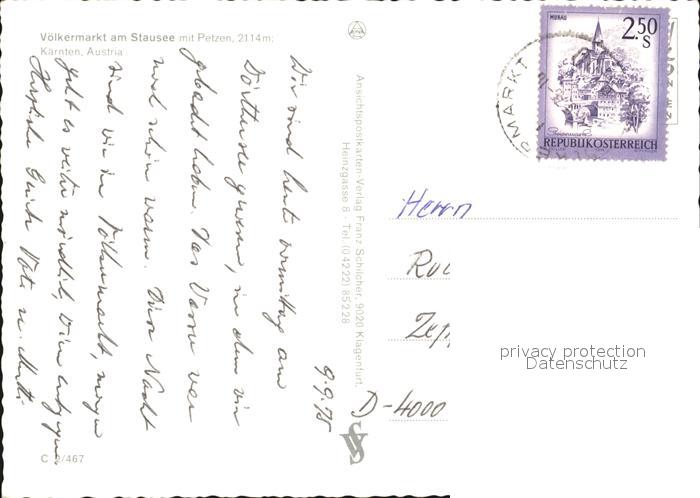 Völkermarkt am Stausee mit Petzen, 2114 m;
Kärnten, Austria
9.9.75
Wir sind heute vormittag am
Wörthersee gewesen, in dem wir
gebadet haben. Das Wasser war
noch schön warm. Diese Nacht
sind wir in Völkermarkt, morgen
geht es weiter nördlich, Wien entgegen.
Herzliche Grüße Vati u. Mutti
C 2/467
Ansichtspostkarten-Verlag Franz Schilcher, 9020 Klagenfurt,
Heinzgasse 8 - Tel. (0 42 22) 85 2 28
MURAU
2.50
S
Steiermark
REPUBLIK ÖSTERREICH
MARKT
Herrn
D-4000
privacy protection
Datenschutz